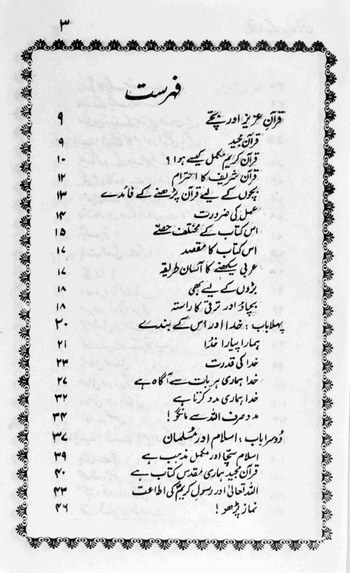 ۳
فہرست
قرآنِ عزیز اور بچّے ۹
قرآن مجید ۹
قرآن کریم مکمل کیسے ہوا؟ ۱۰
قرآن شریف کا احترام ۱۲
بچّوں کے لیے قرآن پڑھنے کے فائدے ۱۳
عمل کی ضرورت ۱۴
اس کتاب کے مختلف حصّے ۱۵
اس کتاب کا مقصد ۱۷
عربی سیکھنے کا آسان طریقہ ۱۷
بڑوں کے لیے بھی ۱۸
بچاؤ اور ترقی کا راستہ ۱۸
پہلا باب: خدا اور اس کے بندے ۲۰
ہمارا پیارا خدا ۲۱
خدا کی قدرت ۲۳
خدا ہماری ہر بات سے آگاہ ہے ۲۷
خدا ہماری مدد کرتا ہے ۳۲
مدد صرف اللہ سے مانگو! ۳۴
دُوسرا باب: اسلام اور مُسلمان ۳۷
اسلام سچّا اور مکمل مذہب ہے ۳۹
قرآن مجید ہماری مقدّس کتاب ہے ۴۰
اللہ تعالیٰ اور رسول کریمؐ کی اطاعت ۴۳
نماز پڑھو! ۴۶